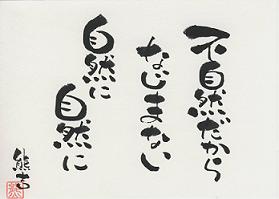 不自然だから
なじまない
自然に
自然に
熊吉